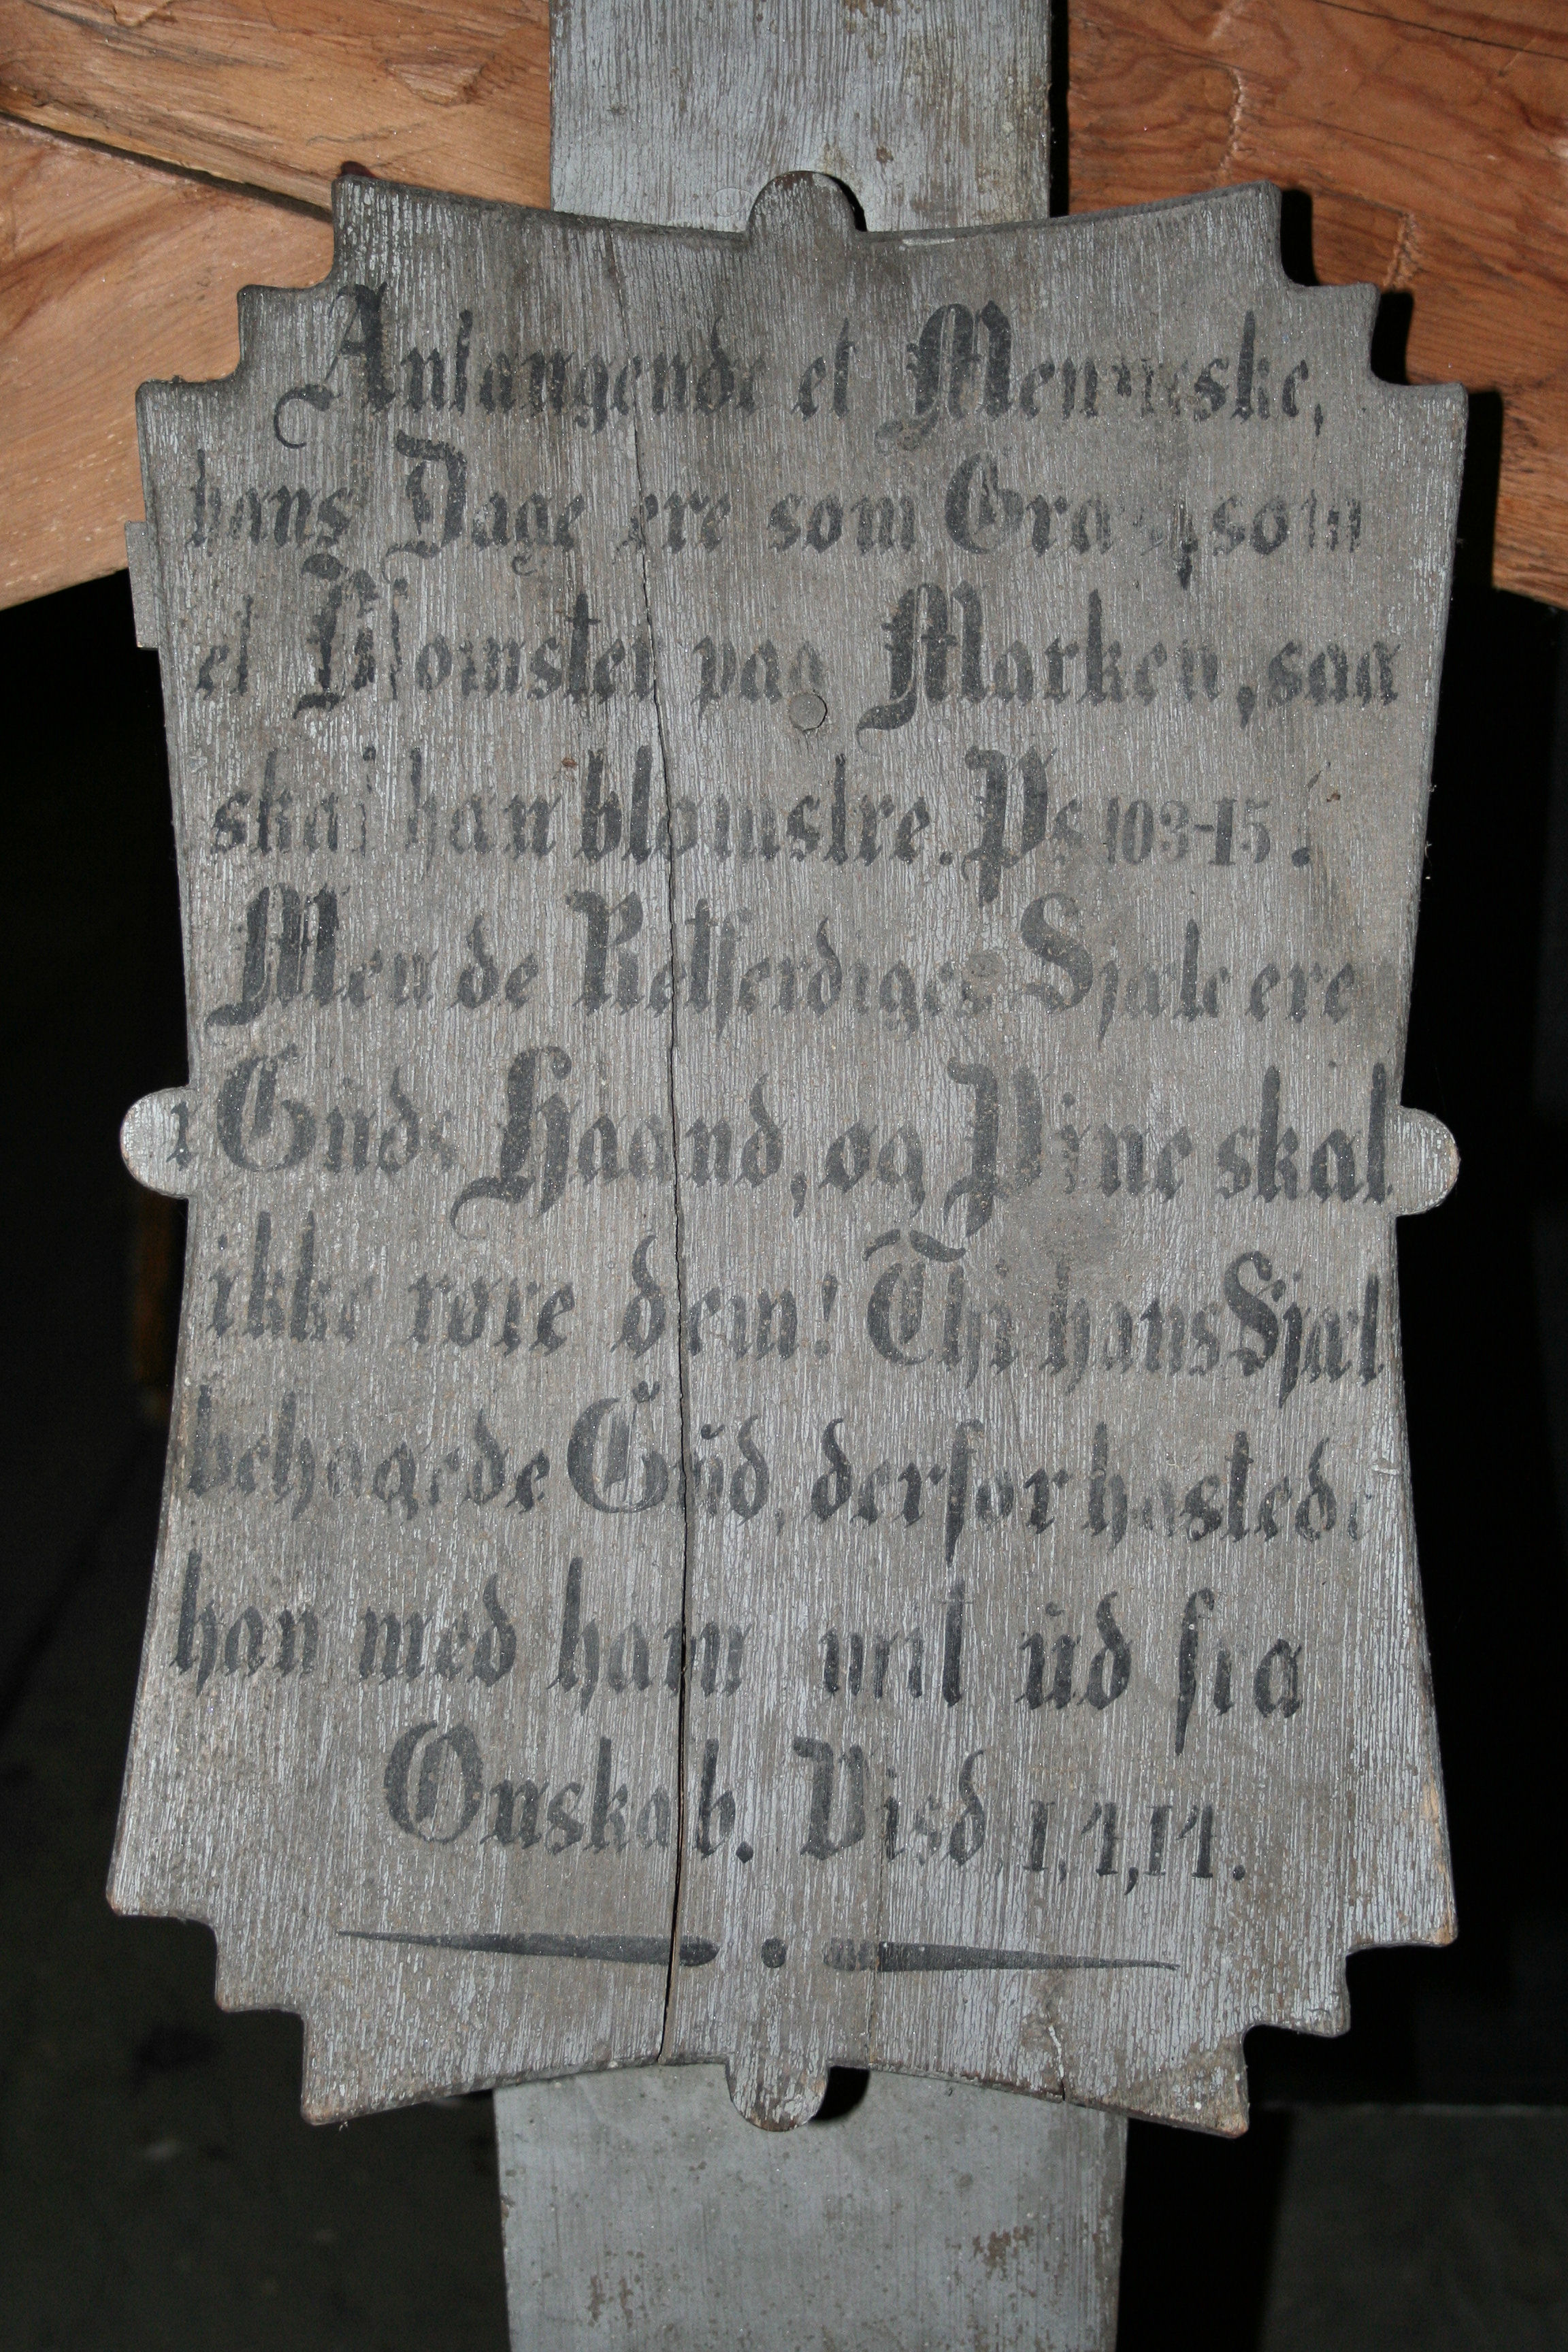 Anlangende et Menneske,
hans Dage ere som Græs, som
et Blomster paa Marken, saa
skal han blomstre. Ps 103-15.
Men de Retferdiges Sjæle ere
i Guds Haand, og Pine skal
ikke røre dem! Thi hans Sjæl
behagede Gŭd, derfor hastede
han med ham mit ŭd fra
Onskab. Visd 1,4,14.